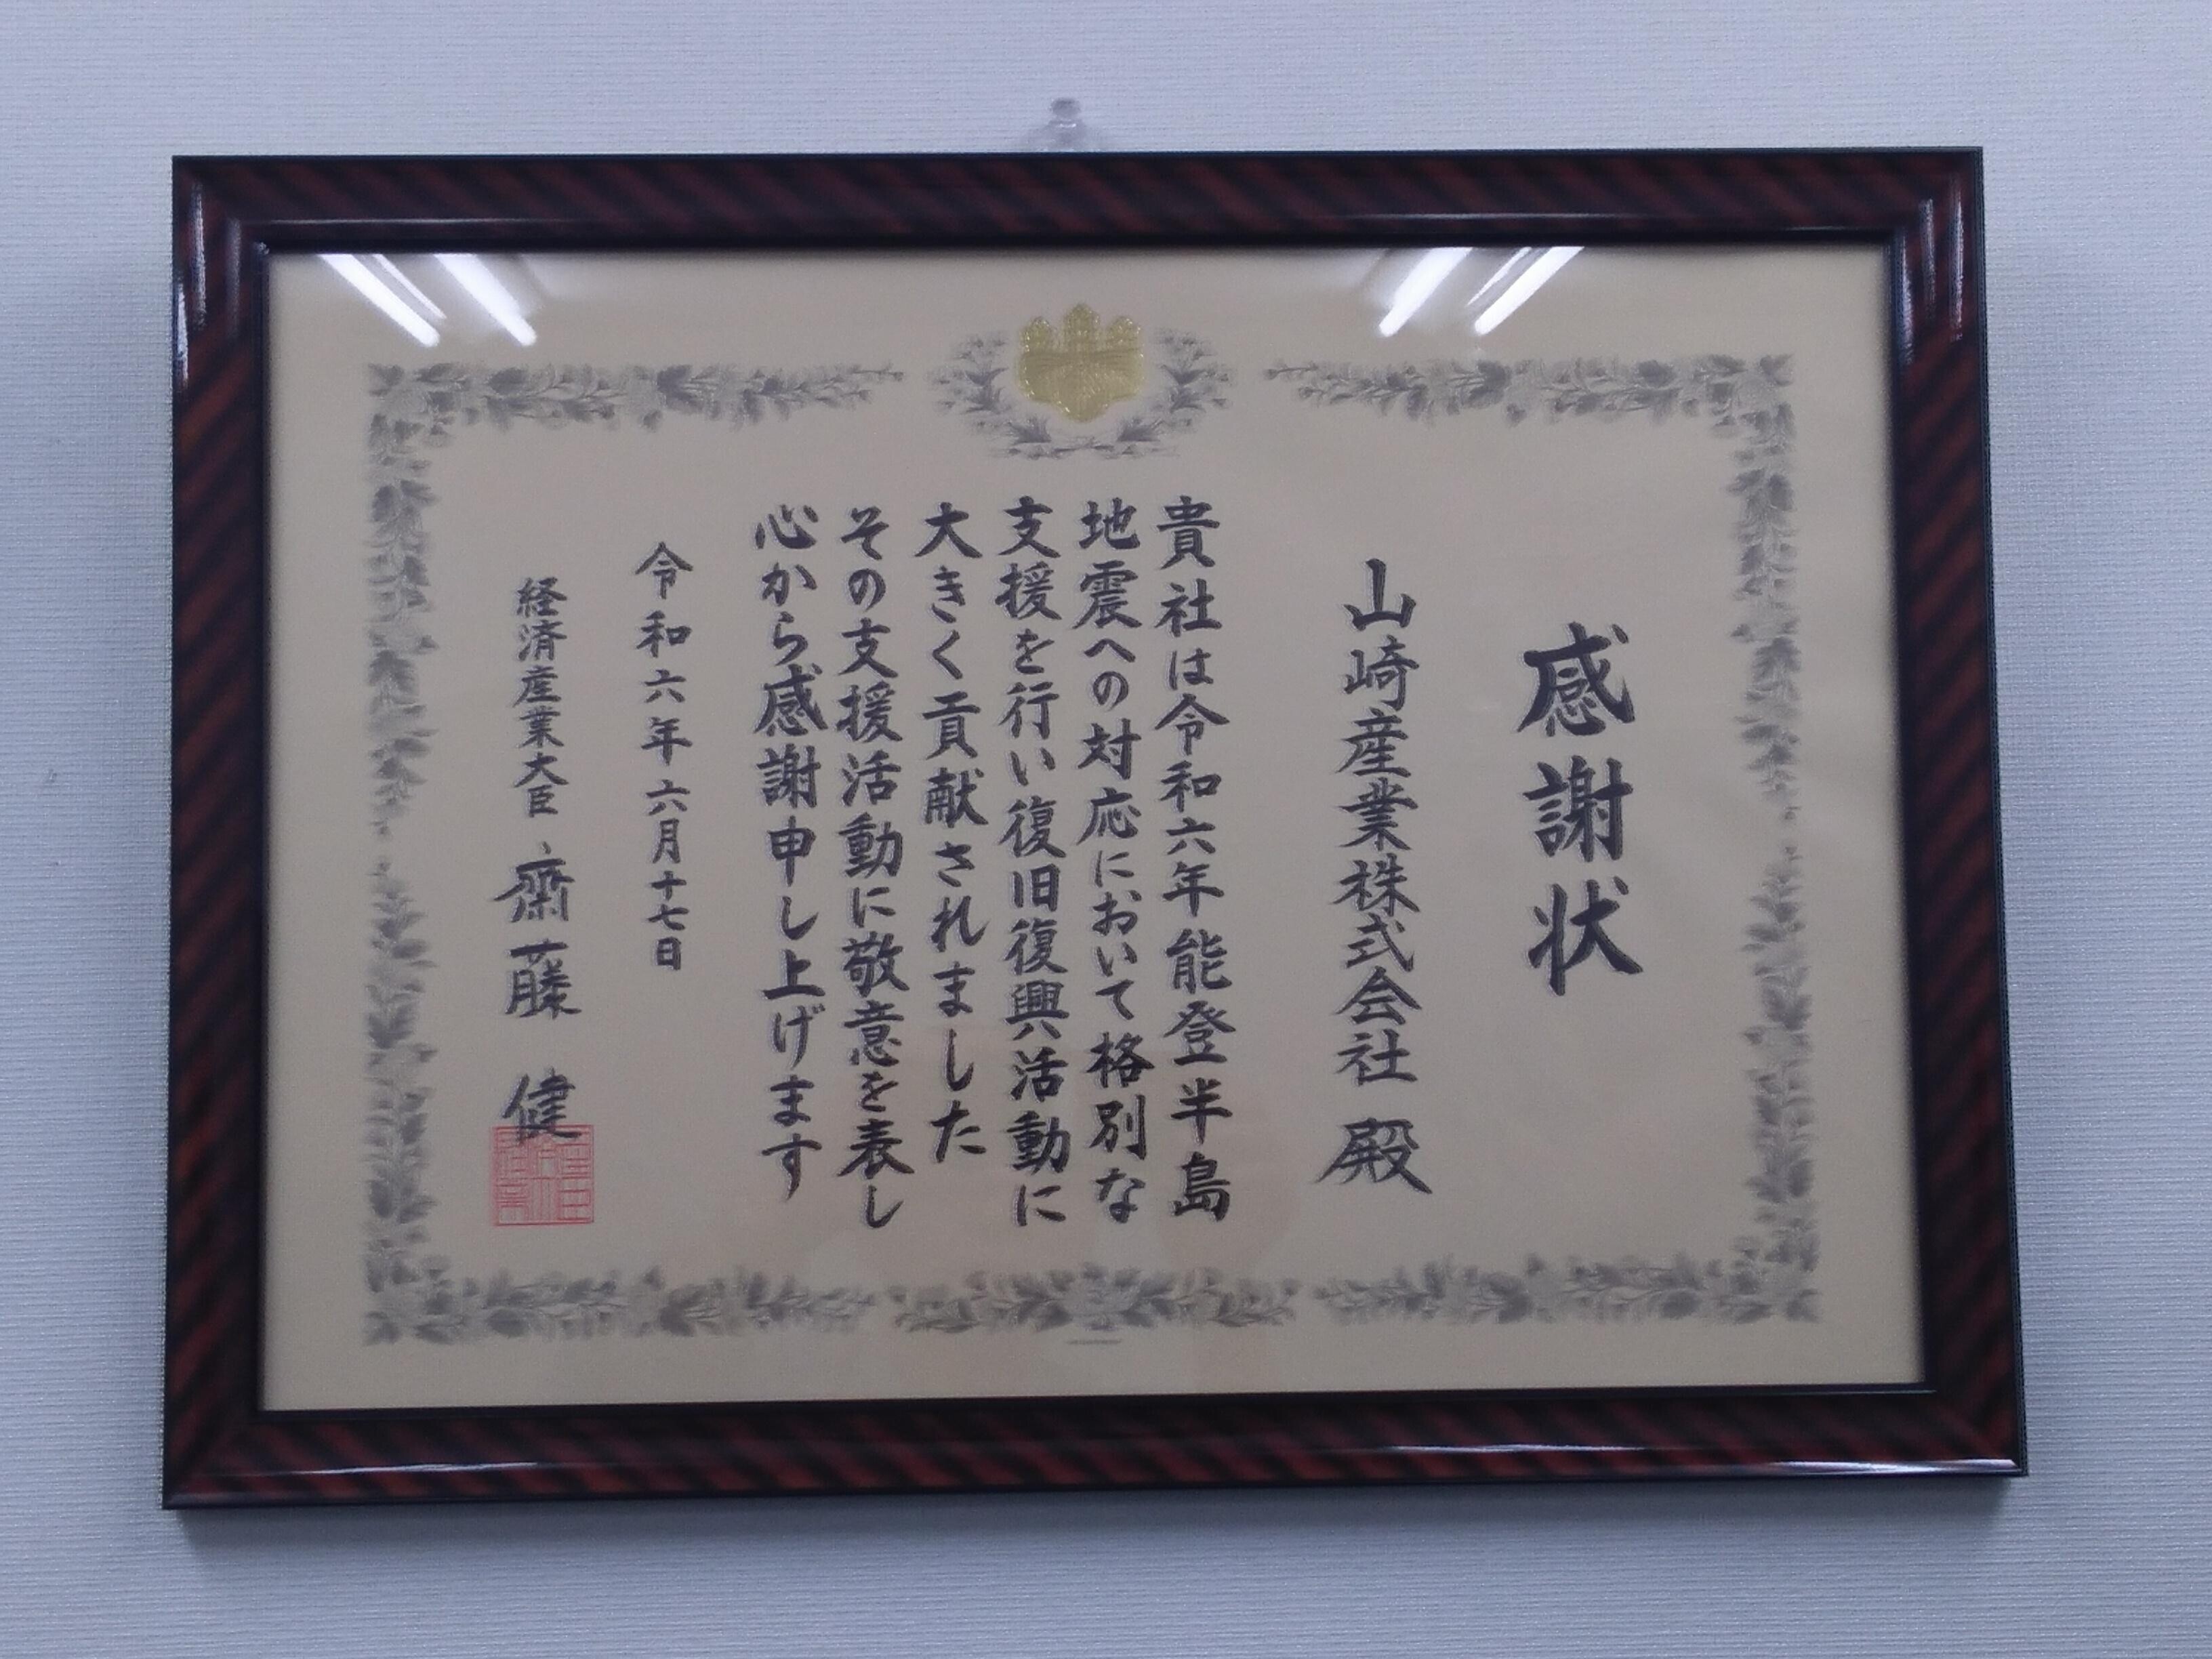 感謝状
山崎産業株式会社 殿
貴社は令和六年能登半島
地震への対応において格別な
支援を行い復旧復興活動に
大きく貢献されました
その支援活動に敬意を表し
心から感謝申し上げます
令和六年六月十七日
経済産業大臣 齋藤 健